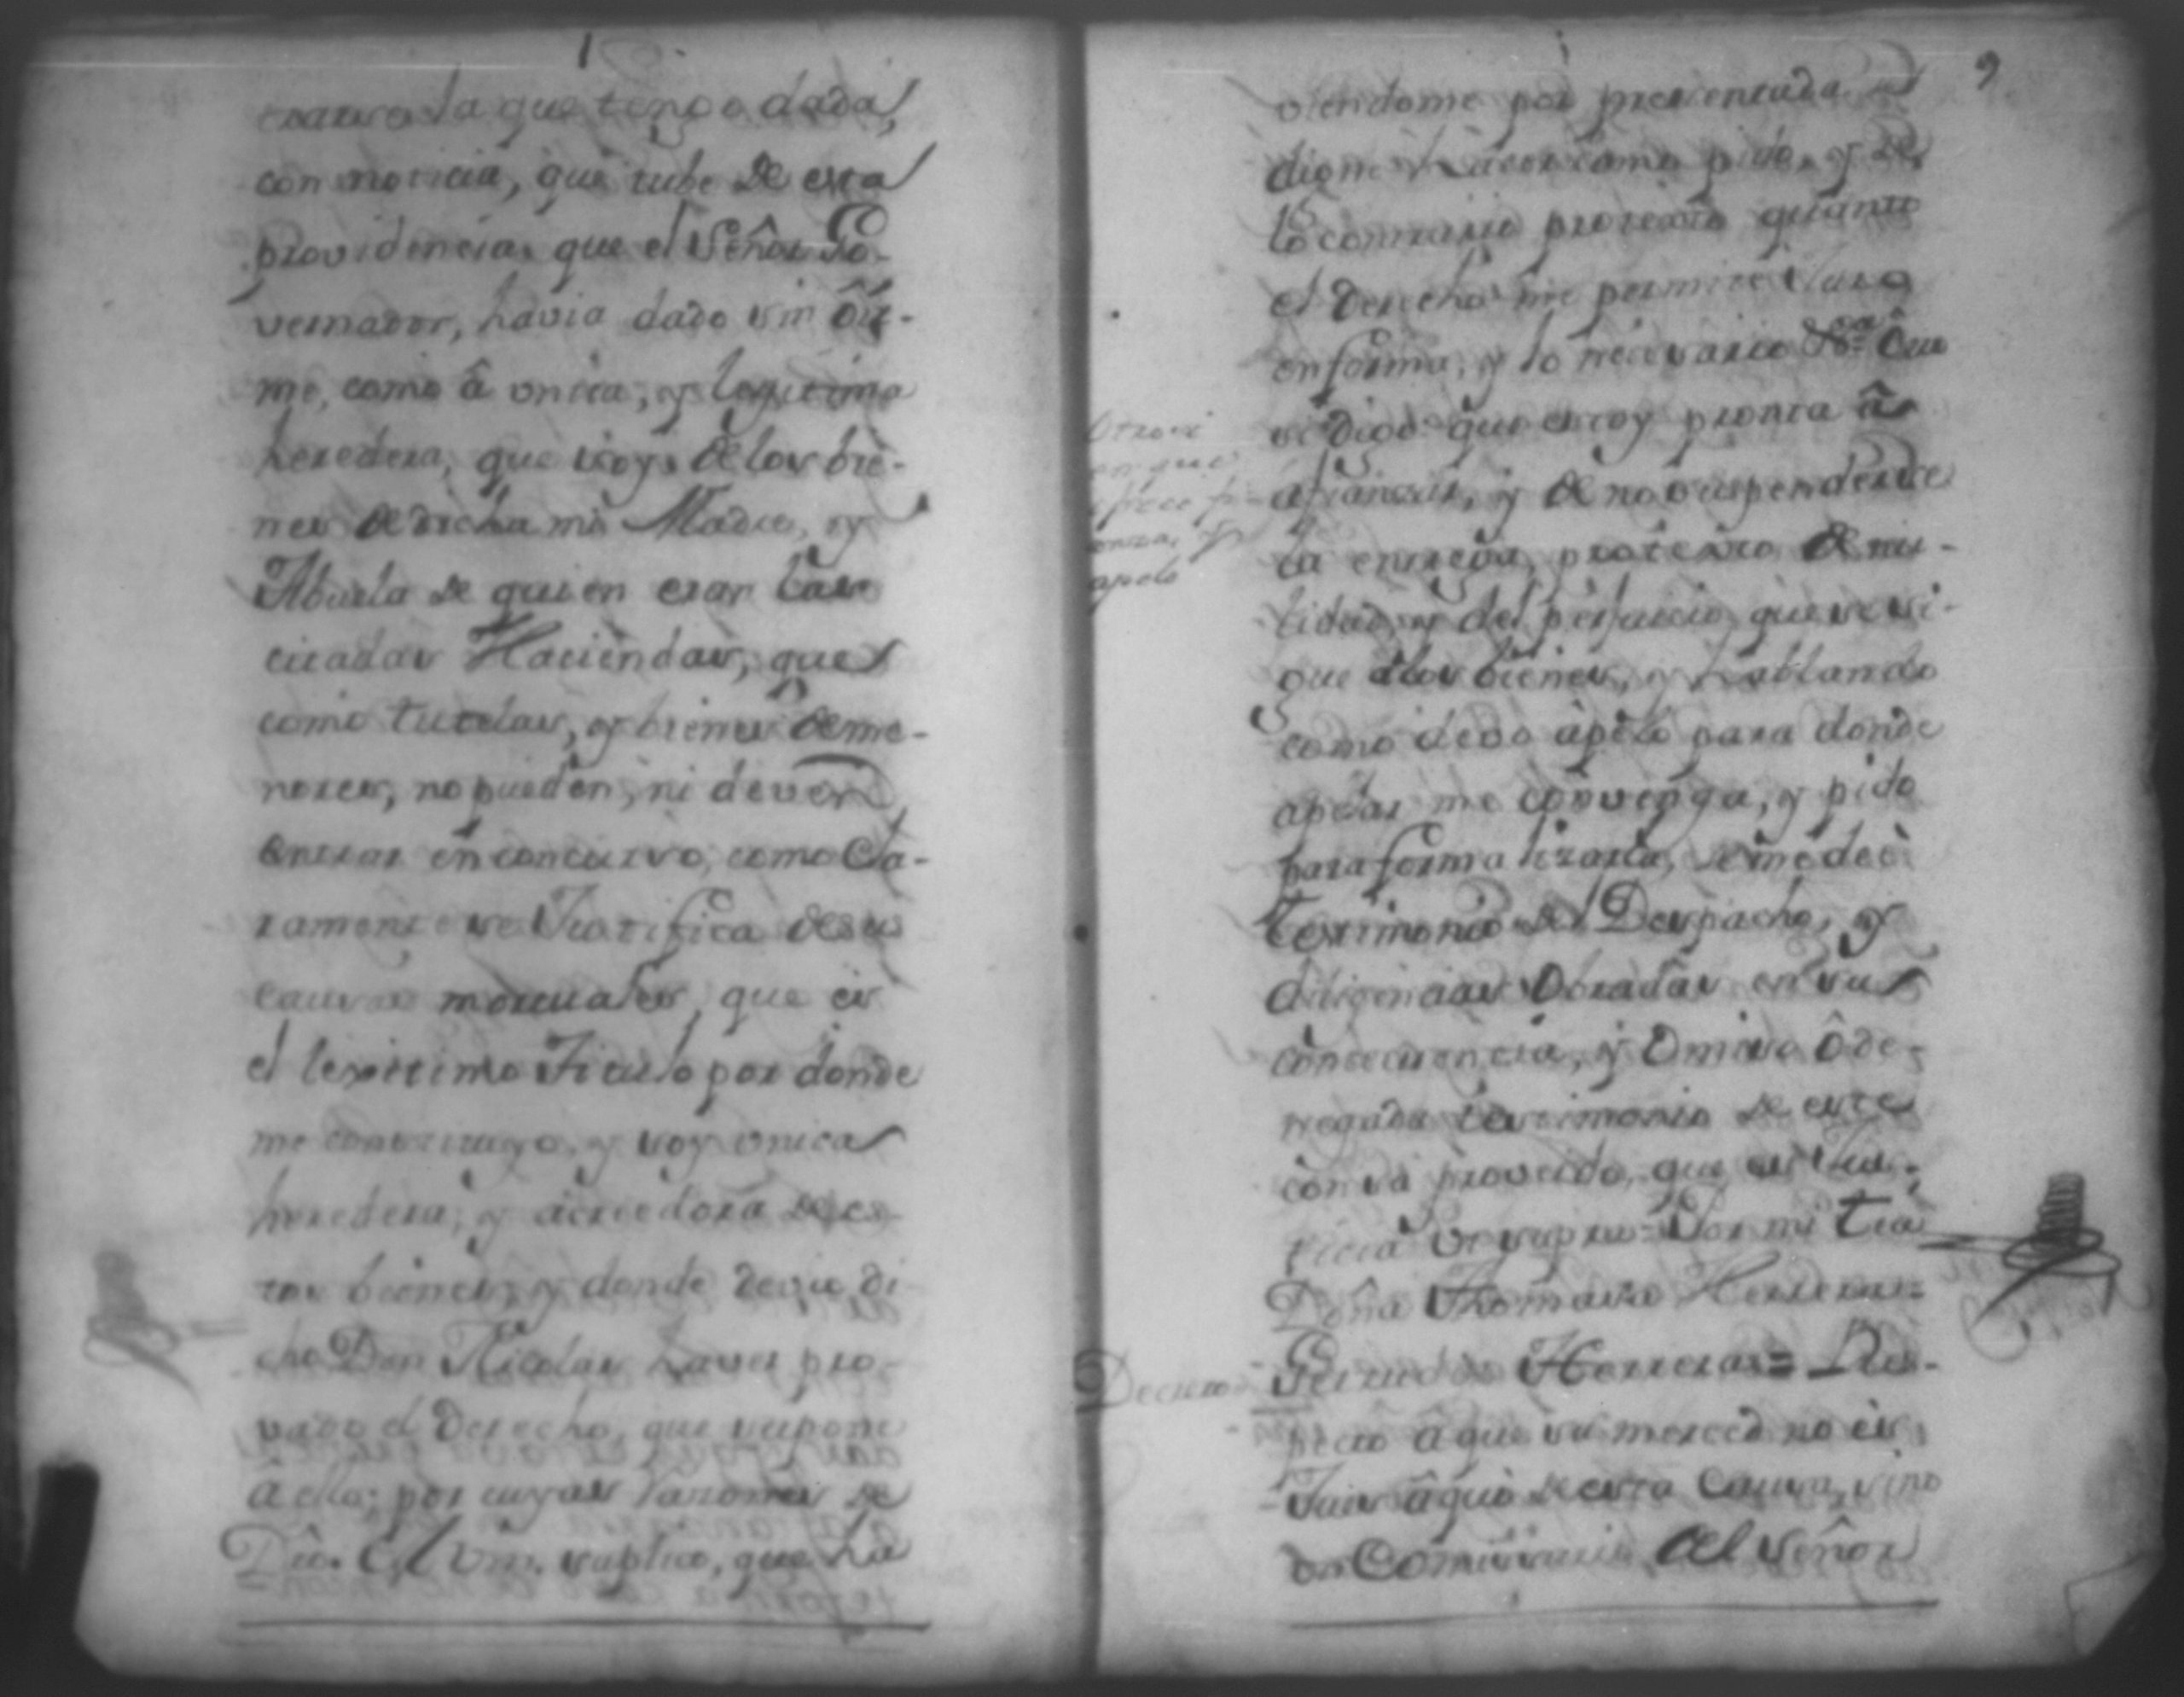 que tengo dada,
con noticia, que tube de esta
providencia, que el Señor Go-
vernador, havia dado sin oir-
me, como â unica, y legitima
heredera, que soy, de los bie-
nes de dicha mi Madre, y
Abuela de quien eran las
citadas Haciendas, que
como tutelas, y bienes de me-
nores, no pueden, ni deven
entrar en concurso, como cla-
ramente se Justifica de sus
causas mortuales, que es
el lexitimo Titulo por donde
me constituyo, y soy unica
heredera, y acreedora de es-
tos bienes, y donde devia di-
cho Don Nicolas haver pro-
vado el derecho, que supone
â ello; por cuyas razones de
Dro. A Vm. suplico, que ha
9
viendome por presentada se
digne hacer como pido, y de
lo contrario protexto quanto
el derecho me permite Juro
en forma, y lo necesario &ca. Otro
si digo que estoy pronta â
afianzar, y de no suspenderse
la entrega, protexto de nu-
lidad, y del perjuicio, que se si-
gue â los bienes, y hablando
como devo apelo para donde
apelar me convenga, y pido
para formalizarla, se me dee
testimonio del Despacho, y
diligencias obradas en su
consecuencia, y Omiso ô de-
negado testimonio de este
con su proveido, que es Jus-
ticia Ut supra = Por mi tia
Doña Thomasa Herrera =
Herrera = Res-
pecto â que su merced no es
Juez âqui de esta Causa, sino
un Comissario del Señor
Otro si
en que
ofrece fi-
anza, y
apela
Decreto